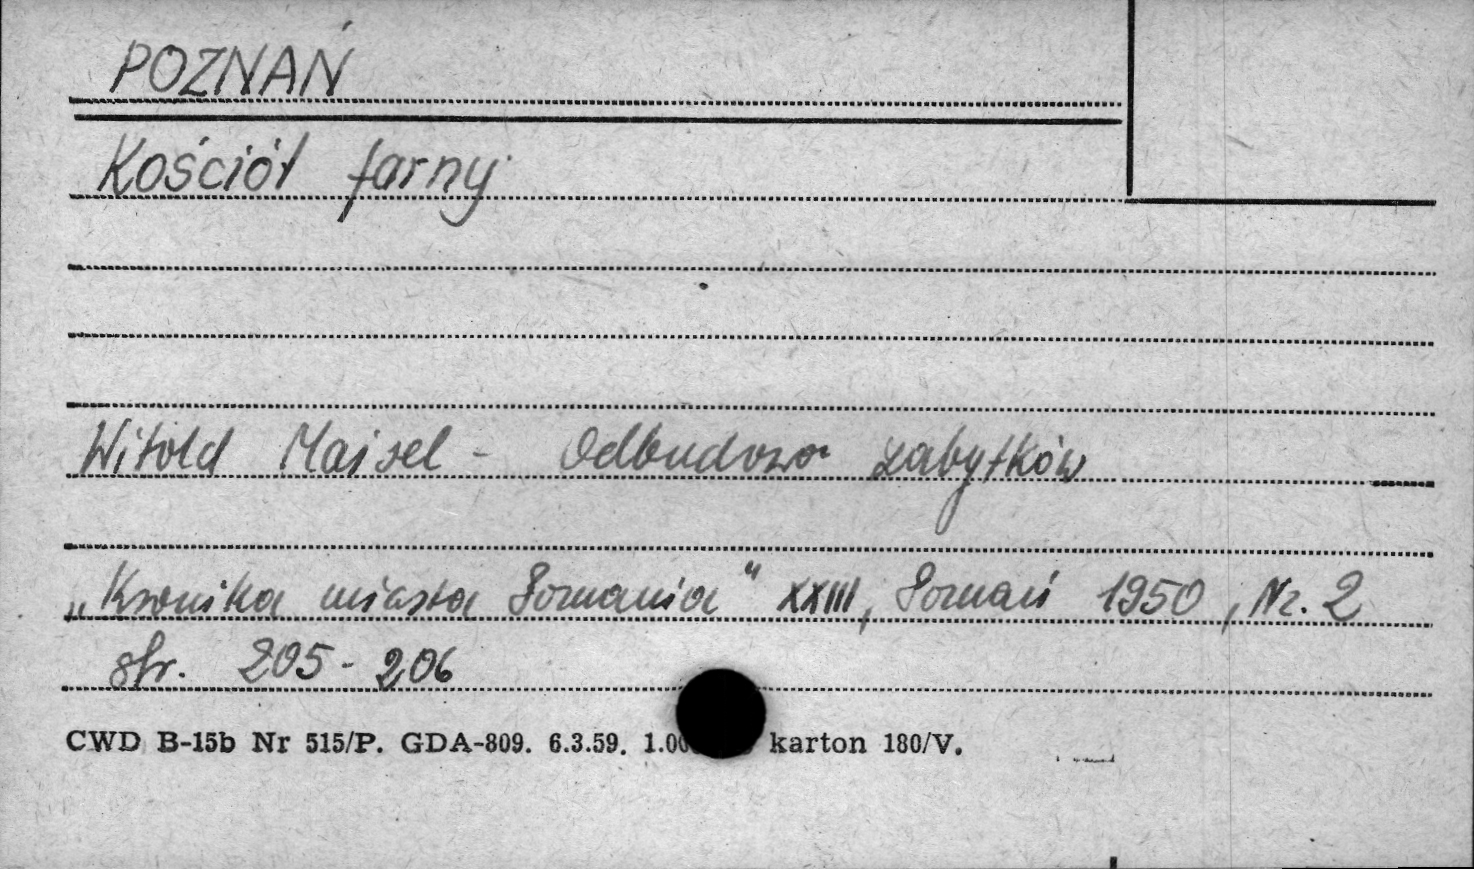 POZNAŃ
Kościół farny
Witold Maisel - Odbudowa zabytków
„Kronika miasta Poznania" XXIII, Poznań 1950, Nr. 2
str. 205-206
CWD B-15b Nr 515/P. GDA-809. 6.3.59. karton 180/V.